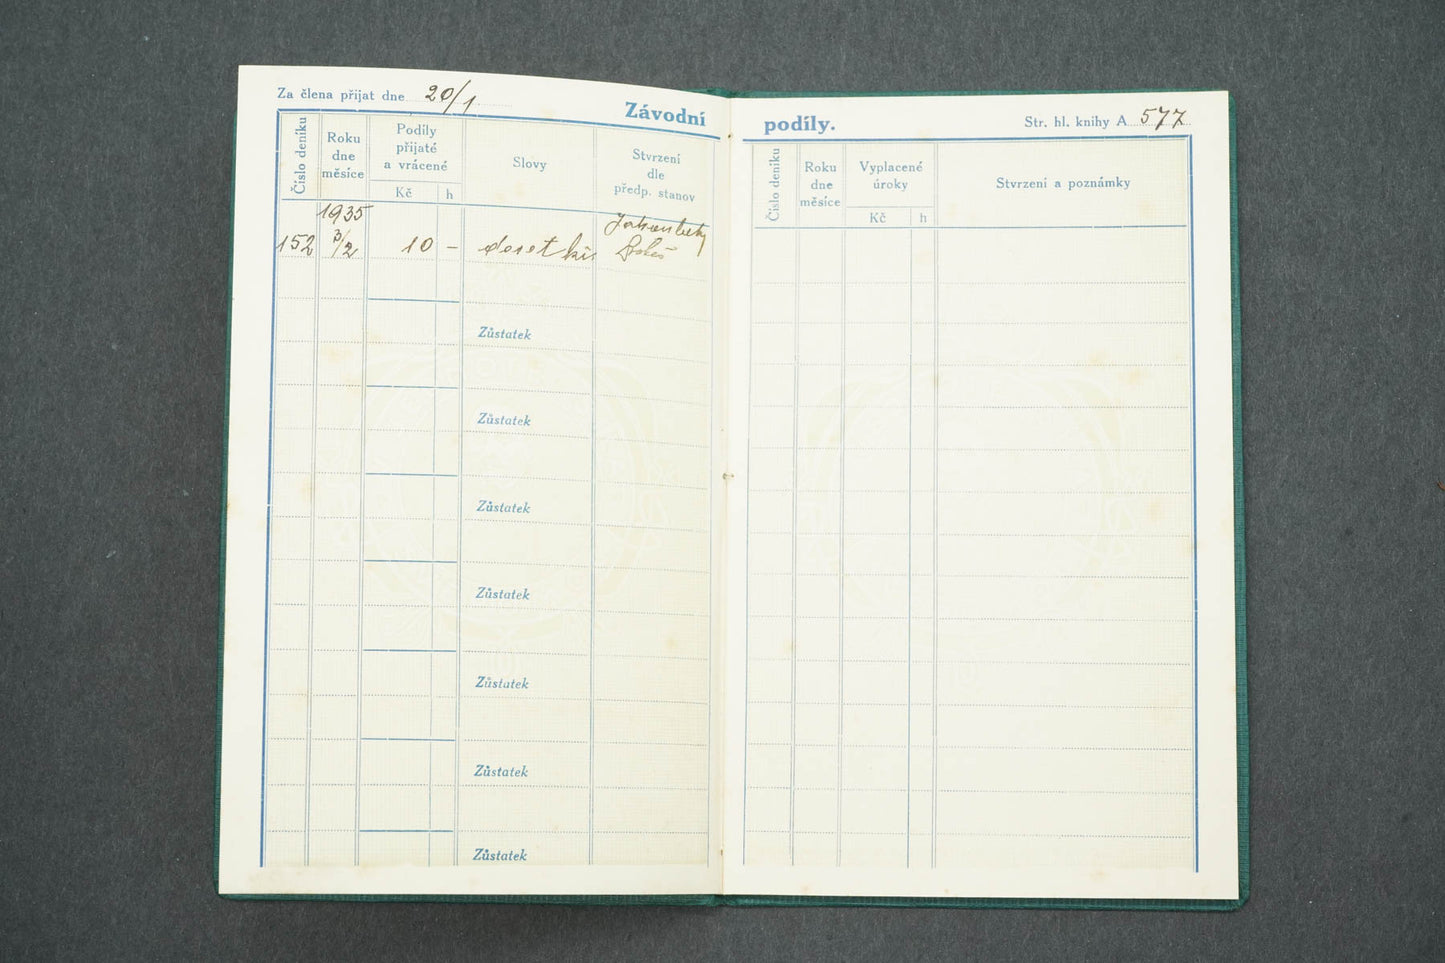 Za člena přijat dne 20/1
Závodní podíly.
Str. hl. knihy A 577
Číslo deníku
Roku
dne
měsíce
Podíly
přijaté
a vrácené
Kč h
Slovy
Stvrzení
dle
předp. stanov
1935
152 3/2 10 – deset kč.
Zůstatek
Zůstatek
Zůstatek
Zůstatek
Zůstatek
Zůstatek
Zůstatek
Číslo deníku
Roku
dne
měsíce
Vyplacené
úroky
Kč h
Stvrzení a poznámky